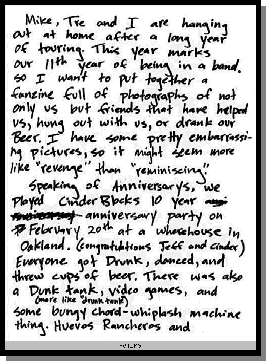 Mike, Tre and I are hanging
out at home after a long year
of touring. This year marks
our 11th year of being in a band.
so I want to put together a
fanzine full of photographs of not
only us but friends that have helped
us, hung out with us, or drank our
Beer. I have some pretty embarrassi-
ng pictures, so it might seem more
like "revenge" than "reminiscing."
Speaking of Anniversarys, we
played Cinder Blocks 10 year
anniversary party on
February 20th at a wharehouse in
Oakland. (congratulations Jeff and Cinder)
Everyone got Drunk, danced, and
threw cups of beer. There was also
a Dunk tank, video games, and
(more like drunk tank)
some bungy chord-whiplash machine
thing. Huevos Rancheros and